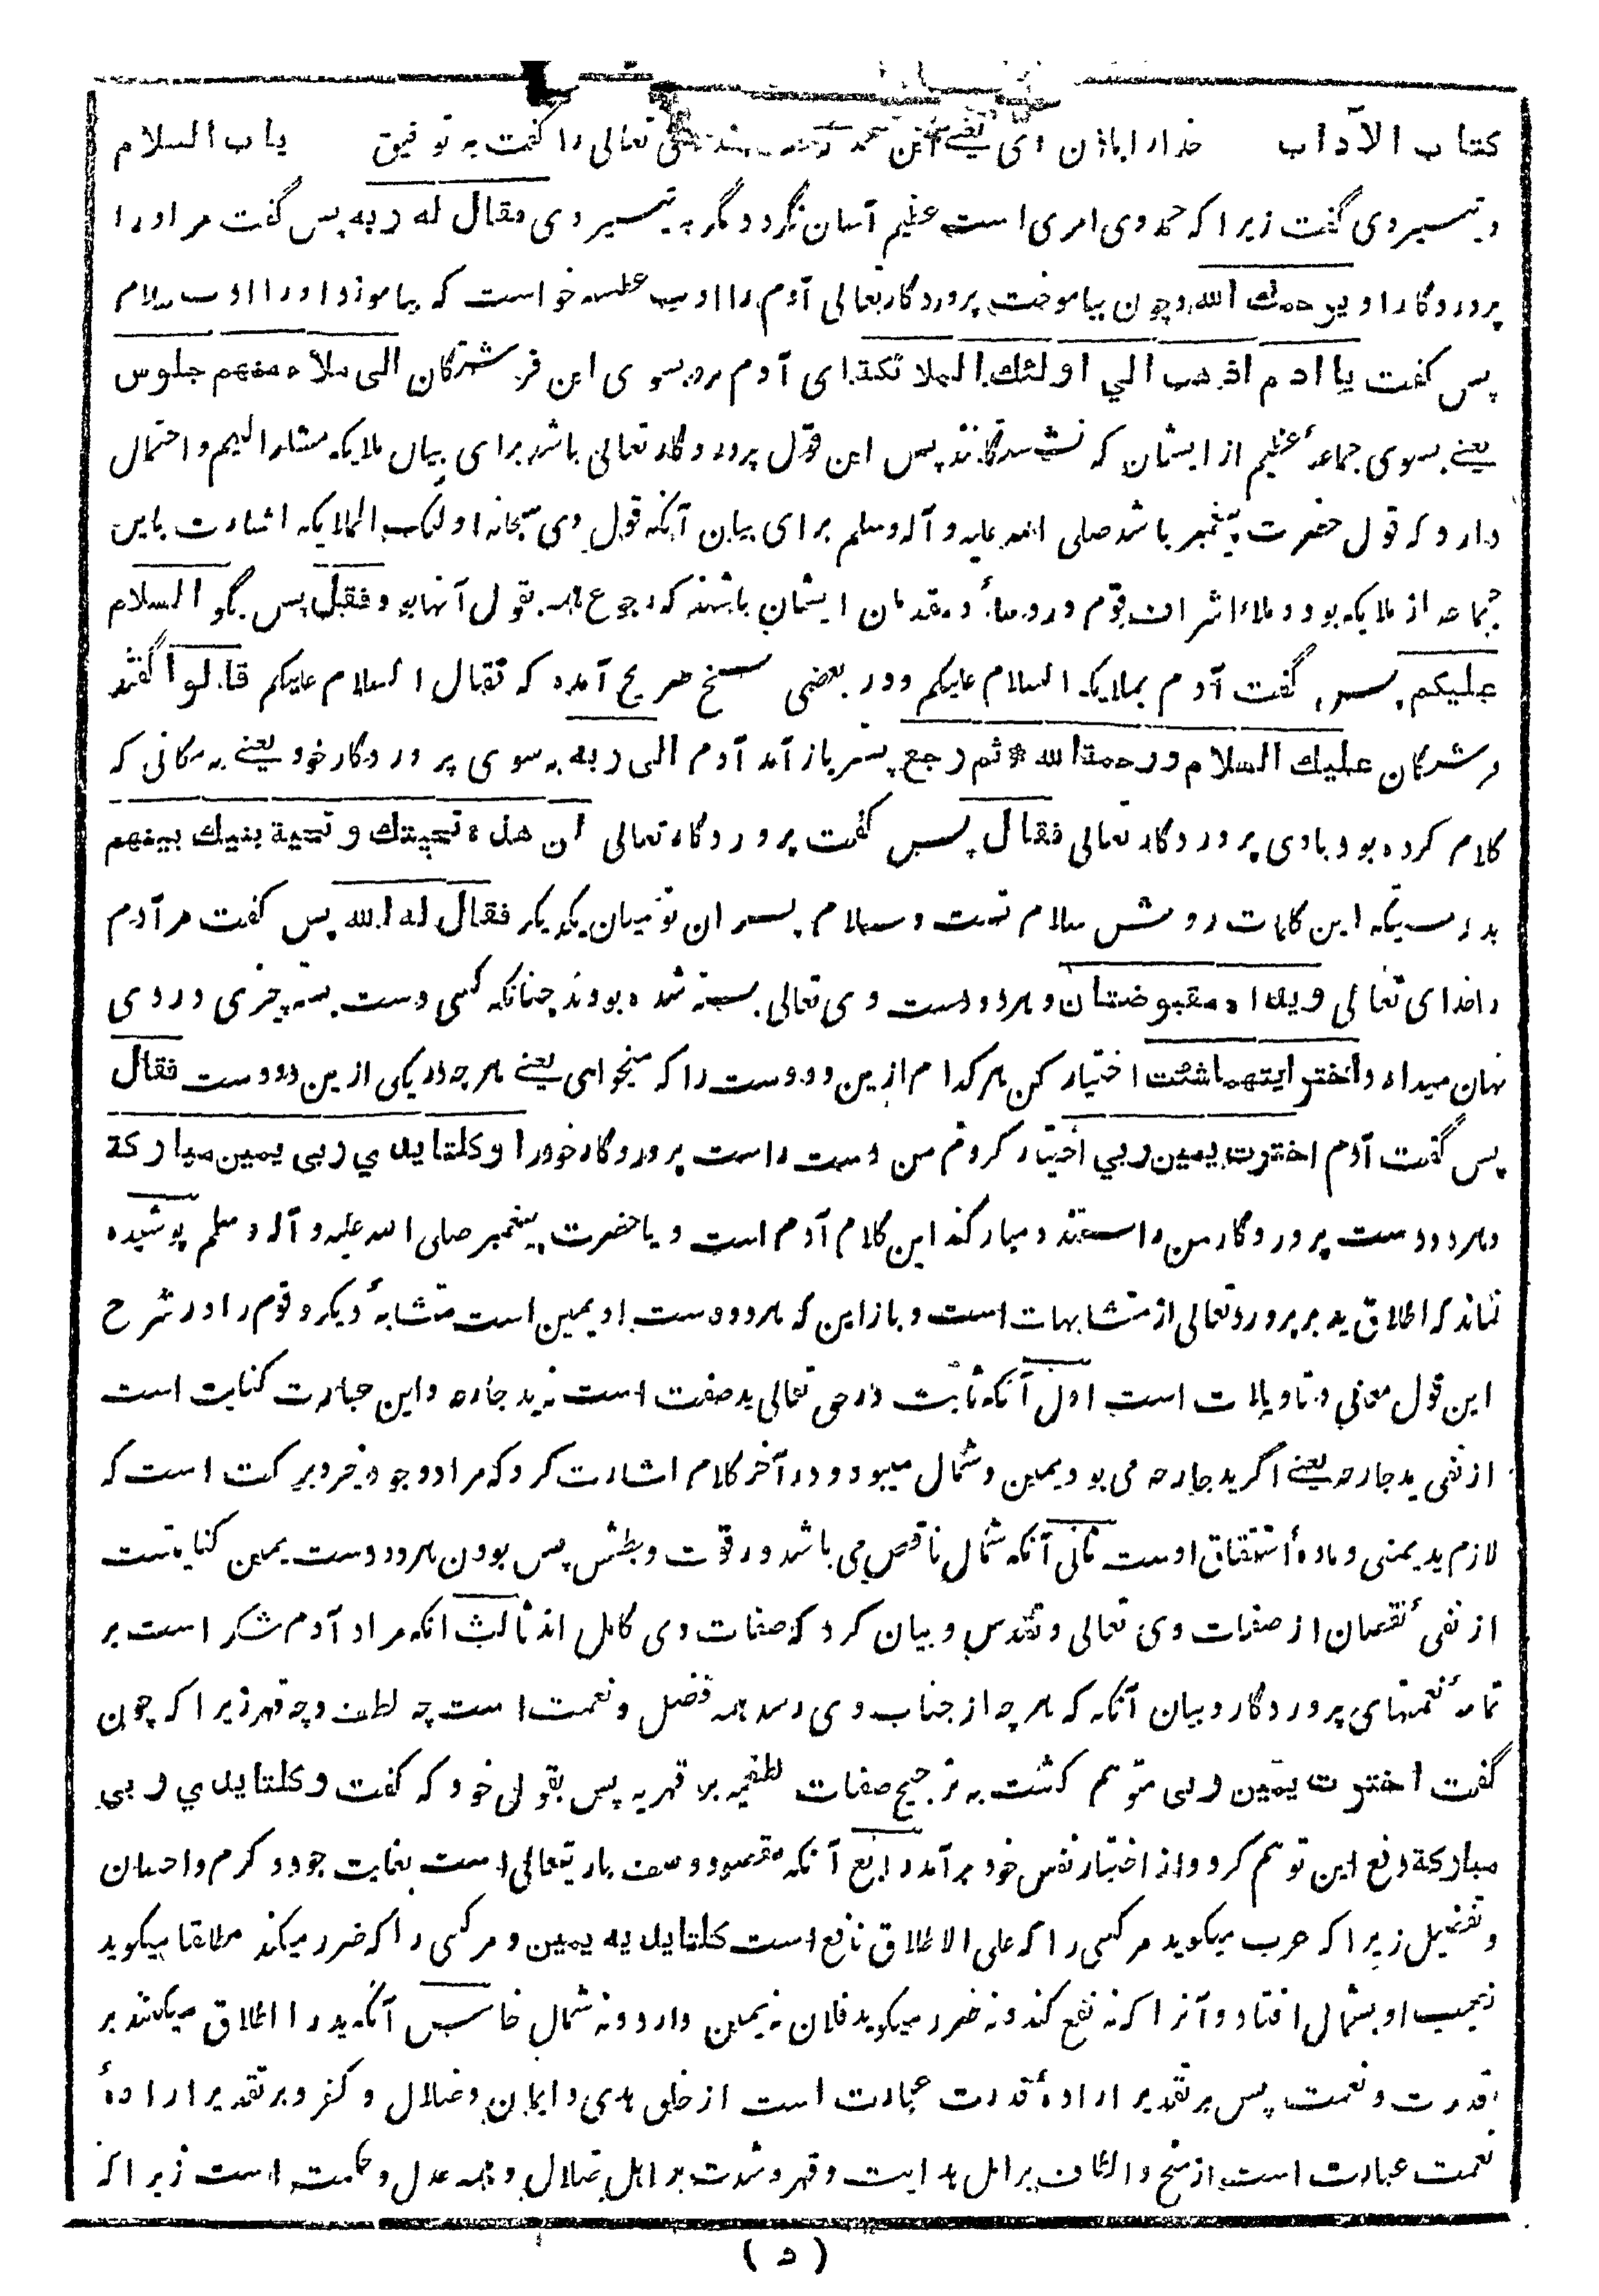 کتاب الآداب خدا را باذن وی یعنے این حمد تعالی را گفت به توفیق باب السلام
و تیسیر وی گفت زیرا که حمد وی امری است عظیم آسان نگردد مگر به تیسیر وی فقال له ربه پس گفت مر او را
پروردگار او یرحمك الله و چون بیاموخت پروردگار تعالی آدم را ادب عطسه خواست که بیاموزد او را ادب سلام
پس گفت یا ادم اذهب الي اولئك الملائكة ای آدم برو بسوی این فرشتگان الی ملاء منهم جلوس
یعنے بسوی جماعهٔ عظیم از ایشان که نشستگانند پس این قول پروردگار تعالی باشد برای بیان ملایکه مشار الیهم و احتمال
دارد که قول حضرت پیغمبر باشد صلی الله علیه و آله وسلم برای بیان آنکه قول وی سبحانه اولئک الملایکه اشارت باین
جماعه از ملایکه بود و ملاء اشراف قوم و روسا و مقدمان ایشان باشند که رجوع همه بقول آنها بود فقل پس بگو السلام
علیکم پس گفت آدم بملایکه السلام علیکم و در بعضی نسخ صریح آمده که فقال السلام علیکم قالوا گفتند
فرشتگان علیك السلام ورحمة الله * ثم رجع پستر باز آمد آدم الی ربه به سوی پروردگار خود یعنے به مکانی که
کلام کرده بود با وی پروردگار تعالی فقال پس گفت پروردگار تعالی ان هذه تحیتك و تحیة بنیك بینهم
بدرستیکه این کلمات روش سلام تست و سلام پسران تو میان یکدیگر فقال له الله پس گفت مر آدم
را خدای تعالی ویداه مقبوضتان و هر دو دست وی تعالی بسته شده بودند چنانکه کسی دست بسته چیزی در وی
نهان میدارد اختر ایتهما شئت اختیار کن هر کدام ازین دو دست را که میخواهی یعنے هر چه در یکی ازین دو دست فقال
پس گفت آدم اخترت یمین ربي اختیار کردم من دست راست پروردگار خود را و کلتا یدي ربی یمین مبارکة
و هر دو دست پروردگار من راستند و مبارکند این کلام آدم است و یا حضرت پیغمبر صلی الله علیه و آله وسلم پوشیده
نماند که اطلاق ید بر پروردتعالی از متشابهات است و باز این که هر دو دست او یمین است متشابهٔ دیگر و قوم را در شرح
این قول معانی و تاویلات است اول آنکه ثابت در حق تعالی ید صفت است نه ید جارحه و این عبارت کنایت است
از نفی ید جارحه یعنے اگر ید جارحه می بود یمین و شمال میبود و در آخر کلام اشارت کرد که مراد وجود خیر و برکت است که
لازم ید یمنی و مادهٔ اشتقاق اوست ثانی آنکه شمال ناقص می باشد در قوت و بطش پس بودن هر دو دست یمین کنایتست
از نفی نقصان از صفات وی تعالی و تقدس و بیان کرد که صفات وی کامل اند ثالث انکه مراد آدم شکر است بر
تمامهٔ نعمتهای پروردگار و بیان آنکه که هر چه از جناب وی رسد همه فضل و نعمت است چه لطف و چه قهر زیرا که چون
گفت اخترت یمین ربی متوهم گشت به ترجیح صفات لطفیه بر قهریه پس بقولی خود که گفت و کلتا یدي ربي
مبارکة دفع این توهم کرد و از اختیار نفس خود برآمد رابع آنکه مقصود وصف باریتعالی است بغایت جود و کرم و احسان
و تفضیل زیرا که عرب میگوید مر کسی را که علی الاطلاق نافع است کلتا یدیه یمین و مر کسی را که ضرر میکند مطلقا میگوید
نصیب او بشمال افتاد و آنرا که نه نفع کند و نه ضرر میگوید فلان نه یمین دارد و نه شمال خامس آنکه ید را اطلاق میکنند بر
قدرت و نعمت پس بر تقدیر ارادهٔ قدرت عبارت است از خلق هدی و ایمان و ضلال و کفر و بر تقدیر ارادهٔ
نعمت عبارت است از منح و الطاف بر اهل هدایت و قهر و شدت بر اهل ضلال و همه عدل و حکمت است زیرا که
( ۵ )